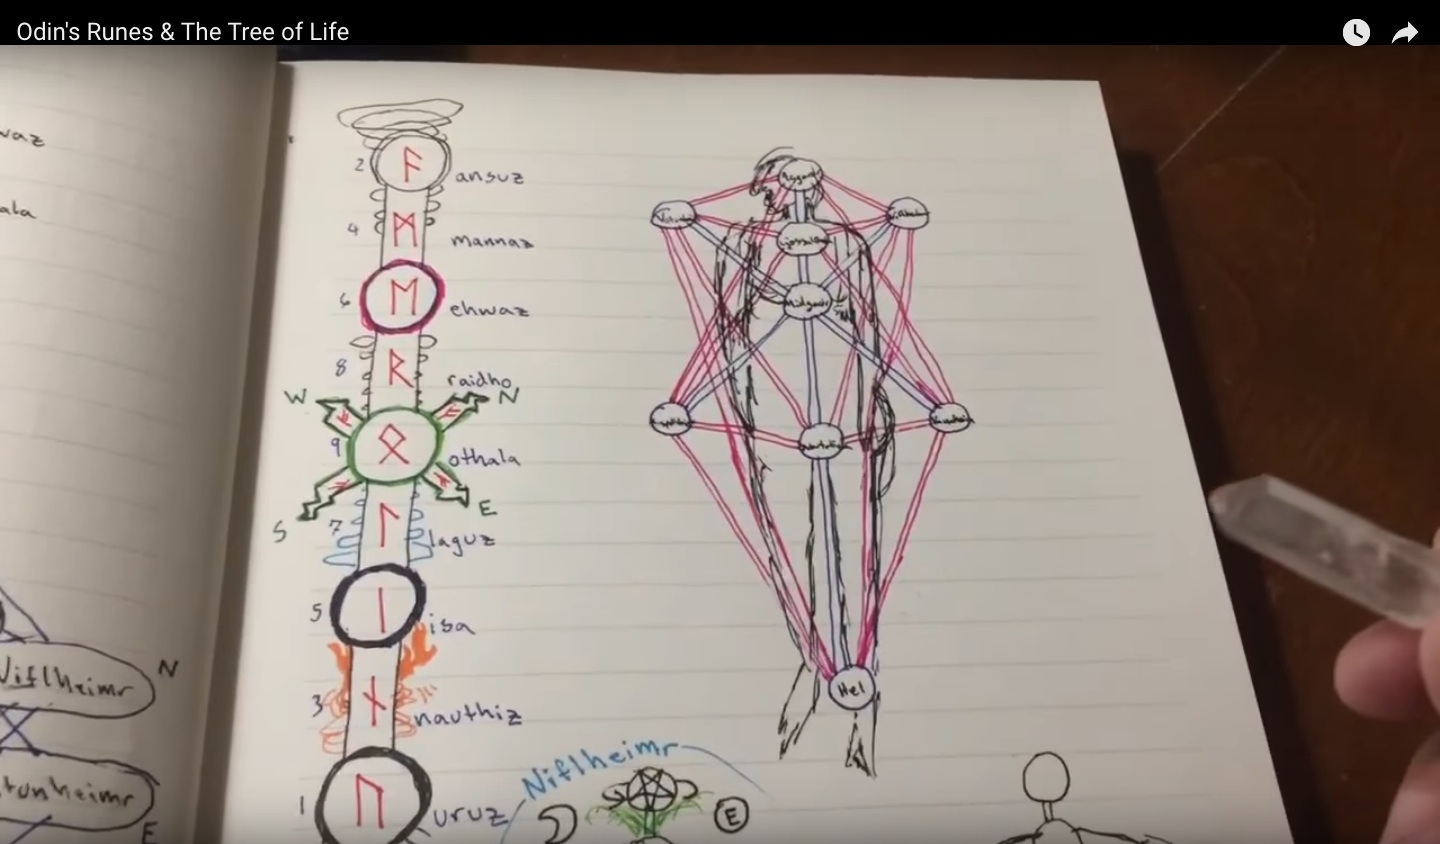 Odin's Runes & The Tree of Life
waz
ala
2 ᚨ ansuz
4 ᛗ mannaz
6 ᛖ ehwaz
8 ᚱ raidho
W N
9 ᛟ othala
S E
7 ᛚ laguz
5 ᛁ isa
3 ᚾ nauthiz
1 ᚢ uruz
Asgard
Midgard
Hel
Niflheimr N
tunheimr
E
Niflheimr
E